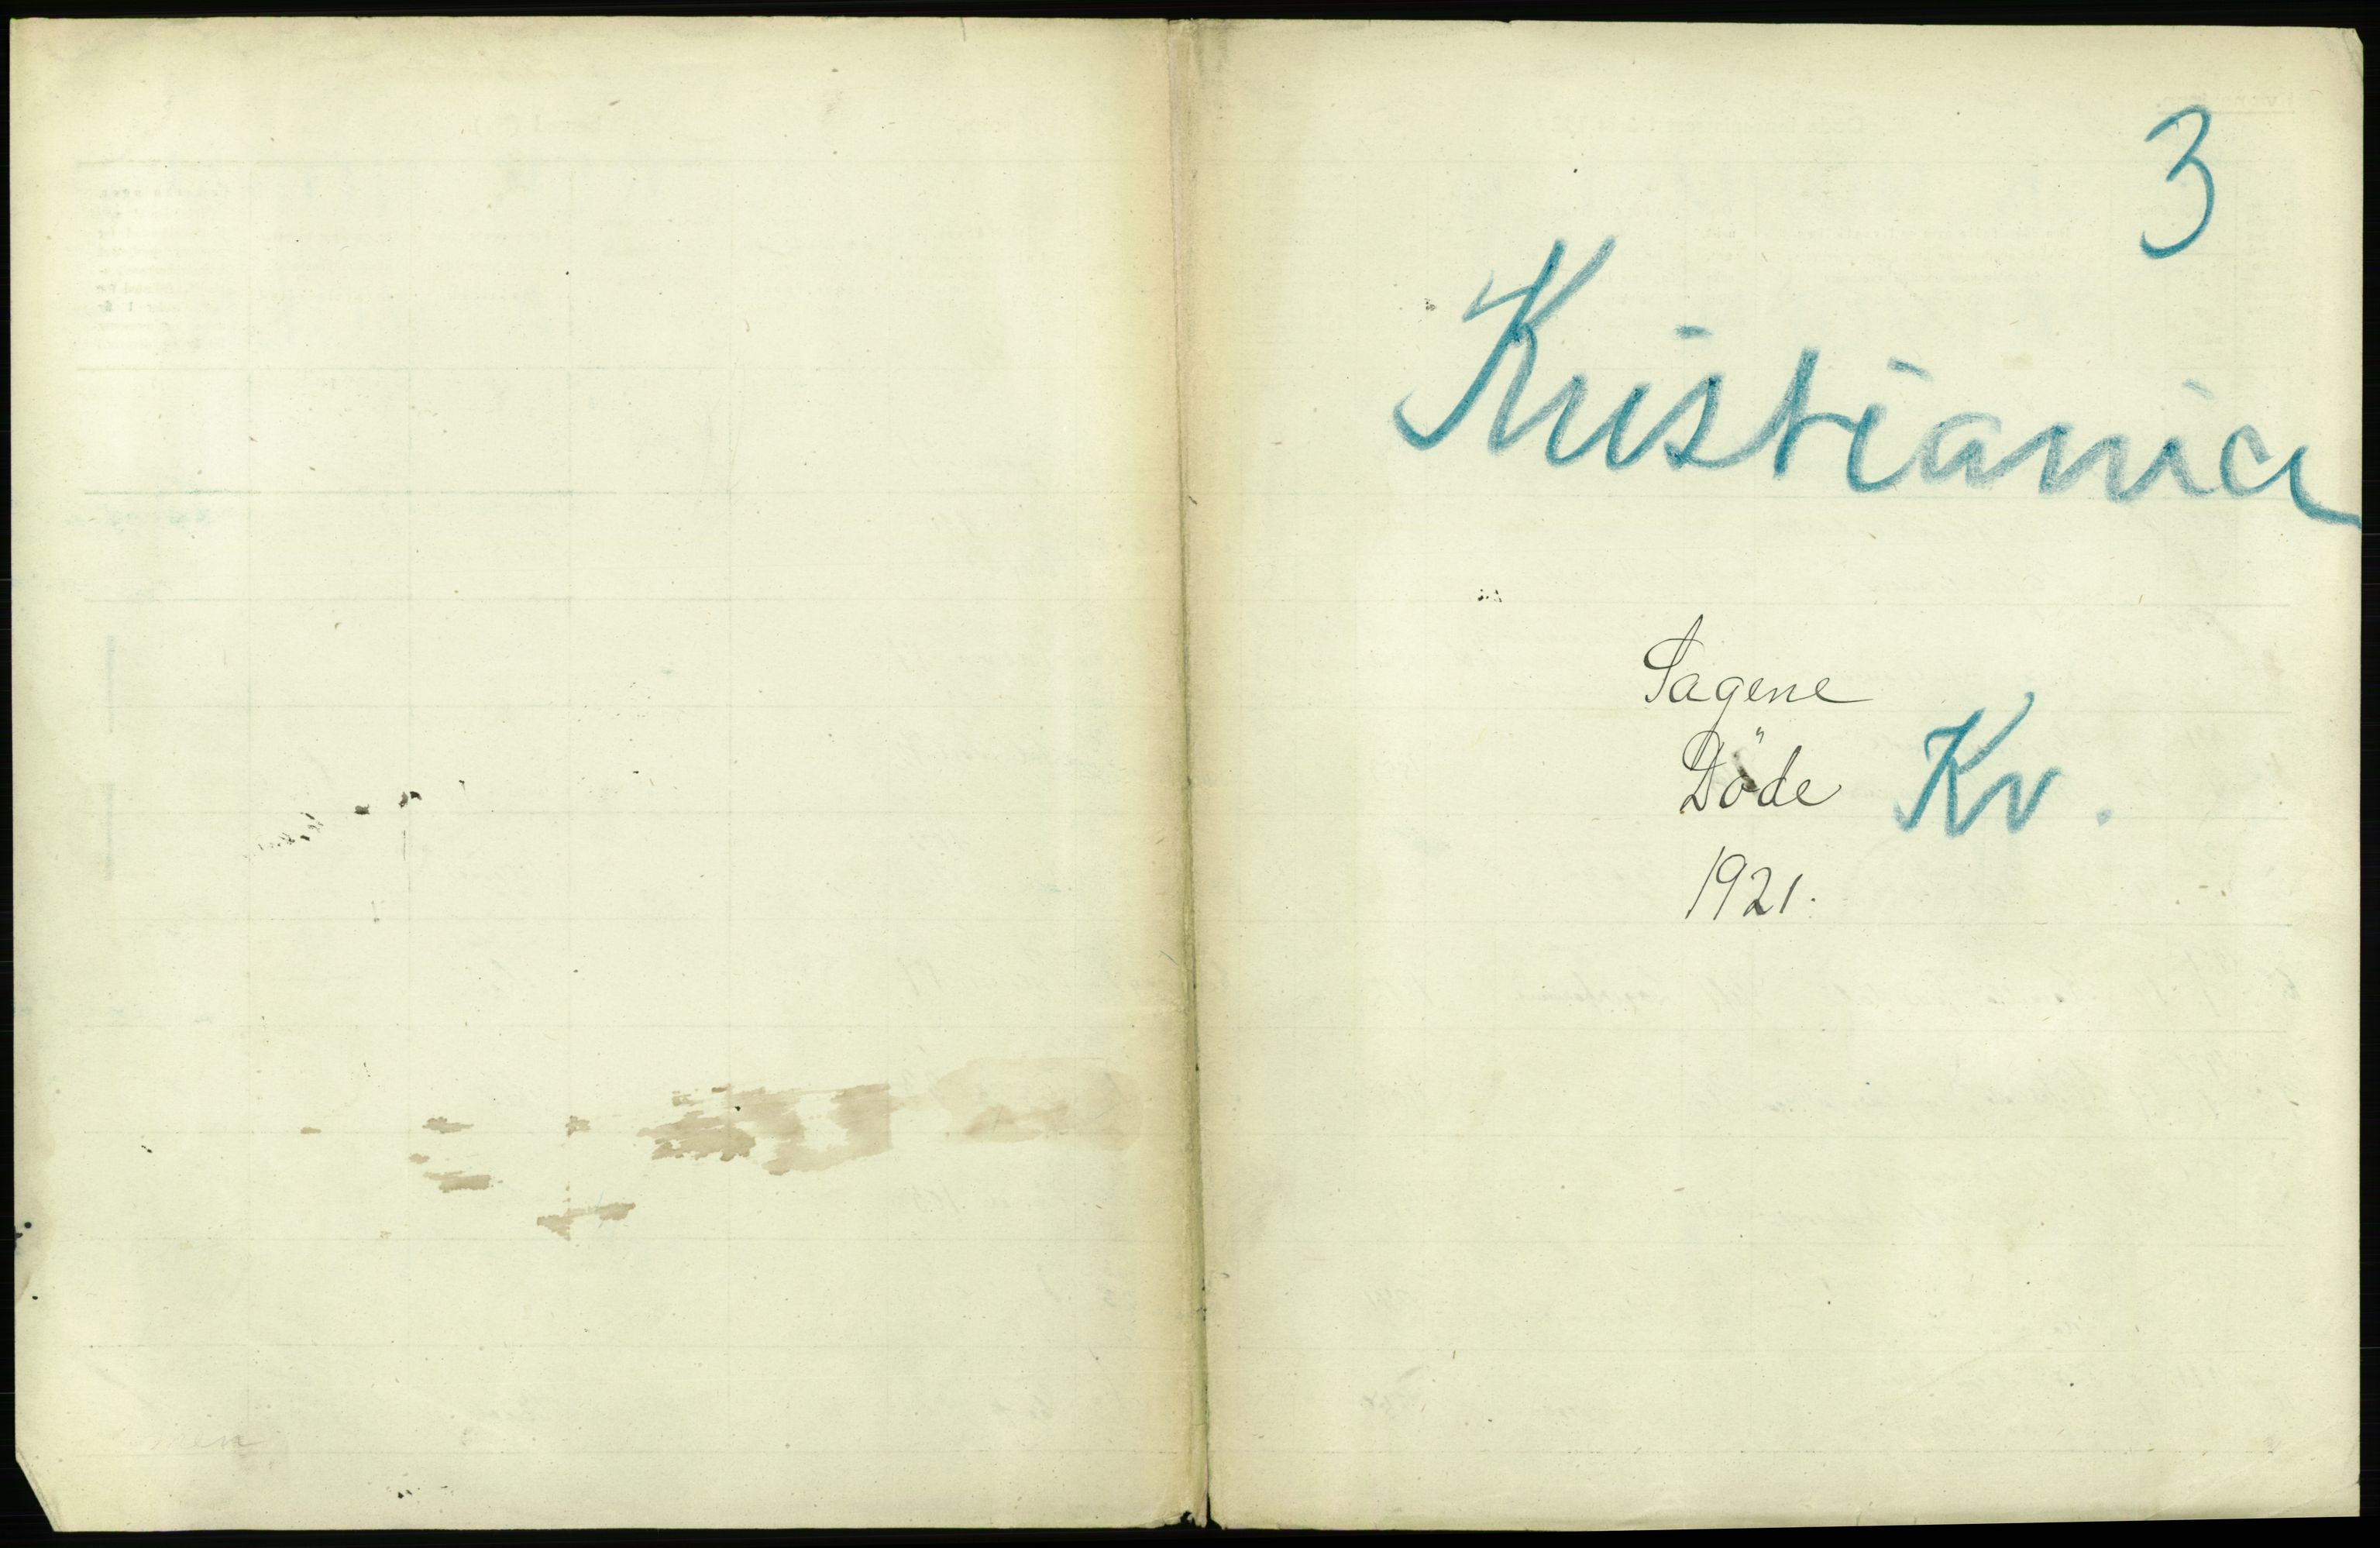 3
Kristiania
Sagene
Döde Kv.
1921.